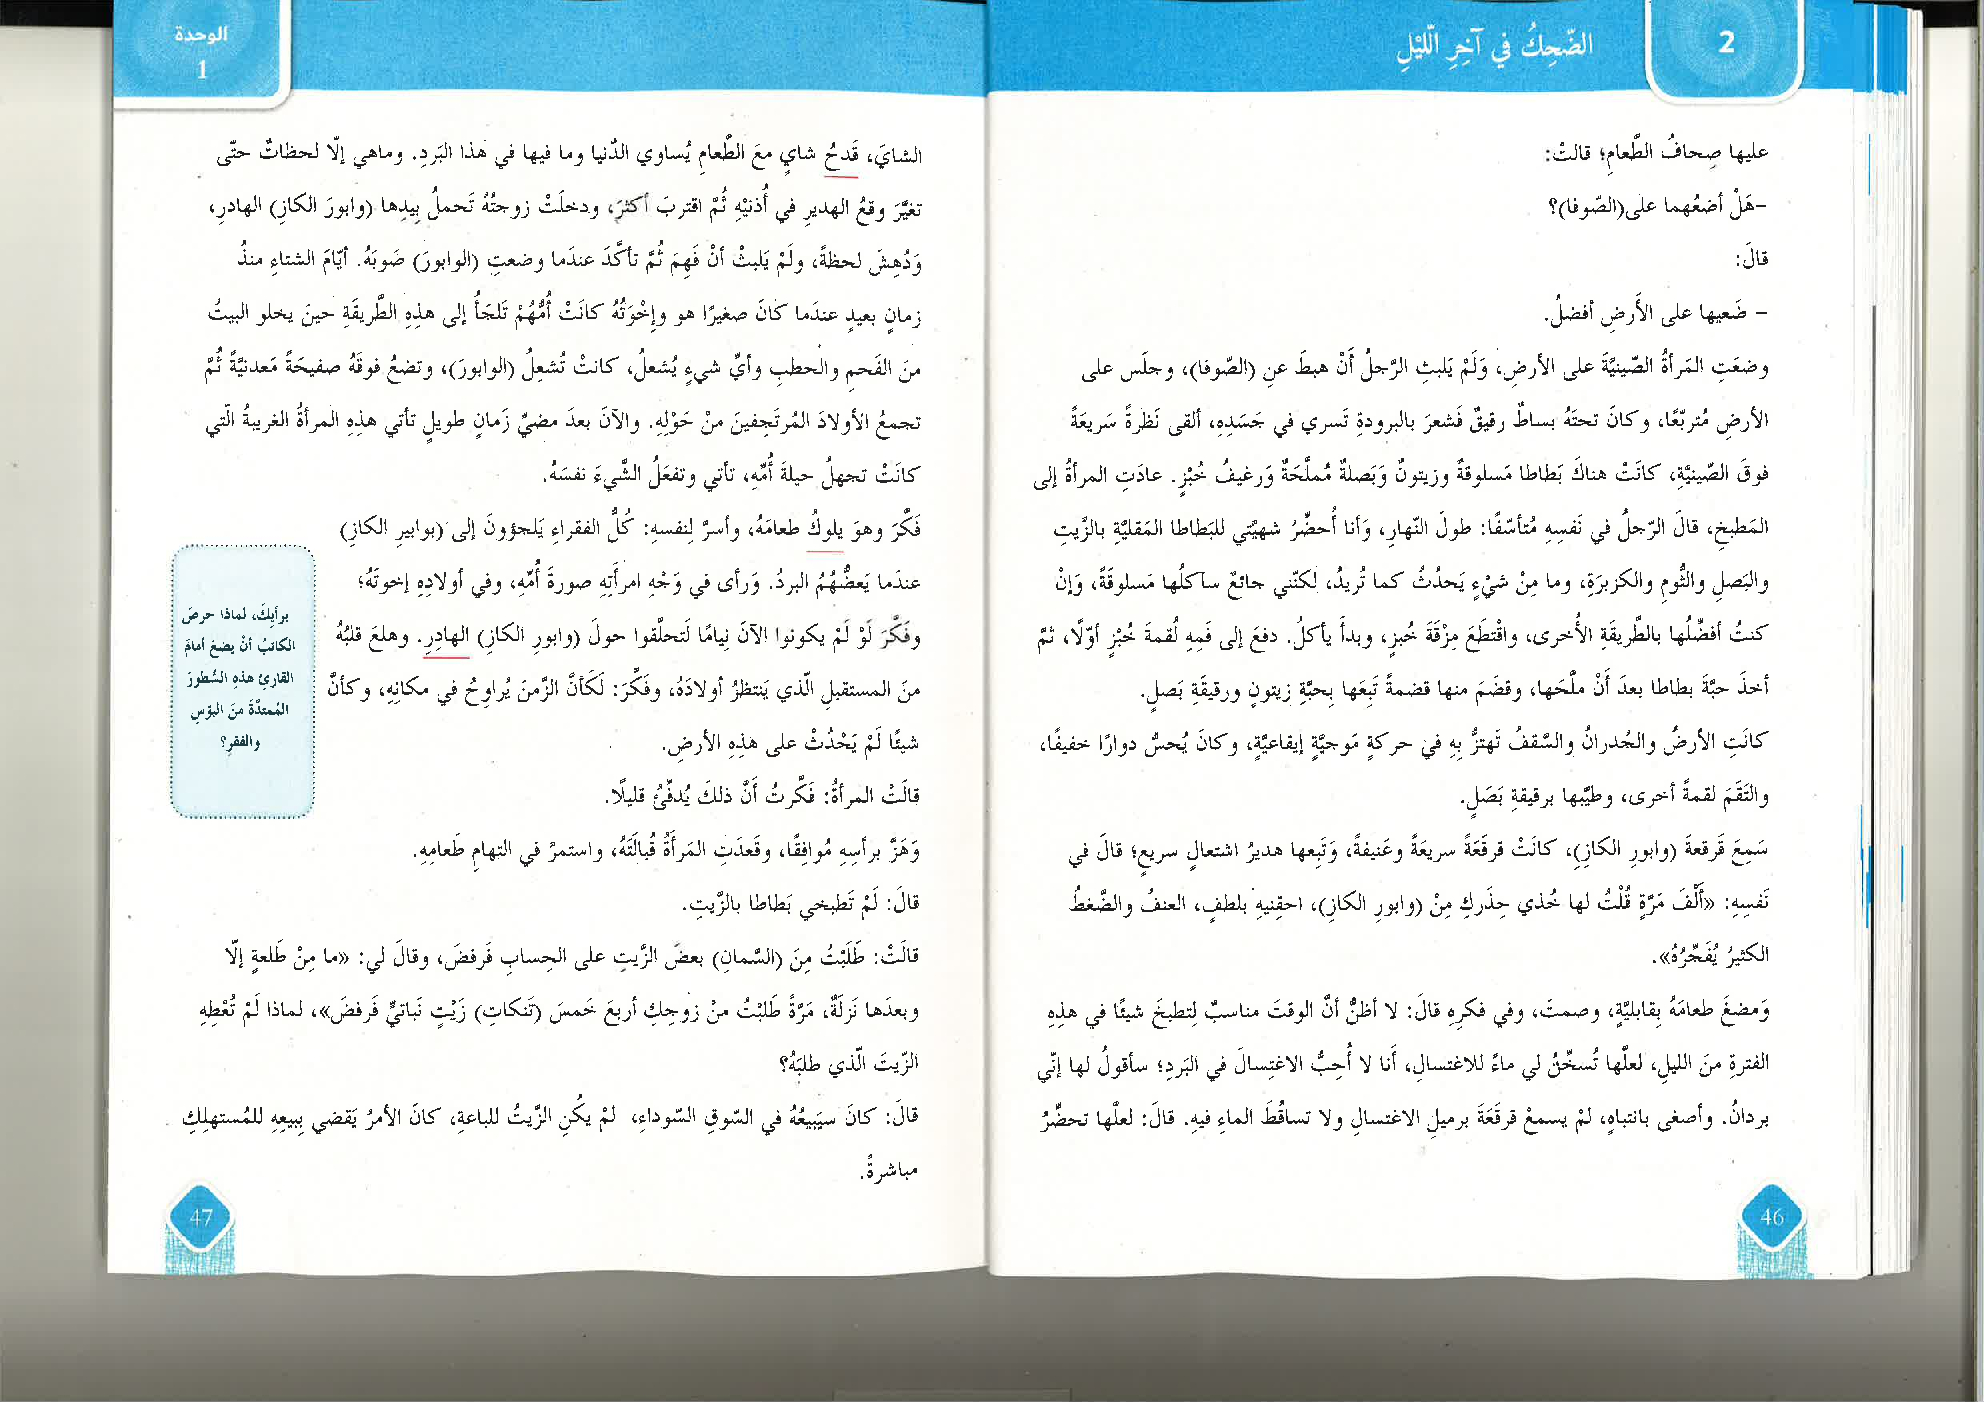 2
الضّحِكُ في آخِرِ اللّيْلِ
عليها صِحافُ الطَّعامِ؛ قالتْ:
-هَلْ أضعُهما على(الصّوفا)؟
قالَ:
- ضَعيها على الأَرضِ أفضلُ.
وضعَتِ المَرأةُ الصّينيَّةَ على الأرضِ، وَلَمْ يَلبثِ الرّجلُ أَنْ هبطَ عنِ (الصّوفا)، وجلَس على
الأرضِ مُتربّعًا، وكانَ تحتَهُ بساطٌ رقيقٌ فَشعرَ بالبرودةِ تَسري في جَسَدِهِ، ألقى نَظرةً سَريعَةً
فوقَ الصّينيَّةِ، كانَتْ هناكَ بَطاطا مَسلوقةٌ وزيتونٌ وَبَصلةٌ مُملَّحَةٌ وَرغيفُ خُبْزٍ. عادَتِ المرأةُ إلى
المَطبخِ، قالَ الرّجلُ في نَفسِهِ مُتأسّفًا: طولَ النّهارِ، وَأنا أُحضّرُ شهيّتي للبَطاطا المَقليَّةِ بالزَّيتِ
والبَصلِ والثُّومِ والكزبرَةِ، وما مِنْ شيْءٍ يَحدُثُ كما تُريدُ، لكنّني جائعٌ ساكلُها مَسلوقَةً، وَإنْ
كنتُ أفضِّلُها بالطَّريقَةِ الأُخرى، واقْتطَعَ مِزْقَةَ خُبزٍ، وبدأَ يأكلُ. دفعَ إلى فَمِهِ لُقمةَ خُبْزٍ أوّلًا، ثمَّ
أخذَ حبَّةَ بطاطا بعدَ أَنْ ملَّحَها، وقضَمَ منها قضمةً تَبِعَها بِحبَّةِ زيتونٍ ورقيقَةِ بَصلٍ.
كانَتِ الأرضُ والجُدرانُ والسَّقفُ تَهتزُّ بِهِ في حركةٍ مَوجيَّةٍ إيقاعيَّةٍ، وكانَ يُحسُّ دوارًا خفيفًا،
والتَقَمَ لقمةً أخرى، وطيَّبها برقيقةِ بَصَلٍ.
سَمِعَ قَرقعةَ (وابورِ الكازِ)، كانَتْ قرقَعَةً سريعَةً وعَنيفةً، وَتَبِعها هديرُ اشتعالٍ سريعٍ؛ قالَ في
نَفسِهِ: «أَلْفَ مَرَّةٍ قُلْتُ لها خُذي حِذَركِ مِنْ (وابورِ الكازِ)، احقِنيهِ بلطفٍ، العنفُ والضَّغطُ
الكثيرُ يُفَجّرُهُ».
وَمضغَ طعامَهُ بِقابليَّةٍ، وصمتَ، وفي فكرِهِ قالَ: لا أظنُّ أنَّ الوقتَ مناسبٌ لِتطبخَ شيئًا في هذِهِ
الفترةِ منَ الليلِ، لعلَّها تُسخّنُ لي ماءً للاغتسالِ، أَنا لا أُحِبُّ الاغتِسالَ في البَردِ؛ سأقولُ لها إنّي
بردانُ. وأصغى بانتباهٍ، لمْ يسمعْ قرقَعَةَ برميلِ الاغتسالِ ولا تساقُطَ الماءِ فيهِ. قالَ: لعلَّها تحضِّرُ
46
الوحدة
1
الشايَ، قَدحُ شايٍ معَ الطَّعامِ يُساوي الدّنيا وما فيها في هذا البَردِ. وماهي إلّا لحظاتٌ حتّى
تغيَّرَ وقعُ الهديرِ في أُذنيْهِ ثُمّ اقتربَ أكثرَ، ودخلَتْ زوجتُهُ تَحملُ بِيدِها (وابورَ الكازِ) الهادرِ،
وَدُهِشَ لحظةً، ولَمْ يَلبثْ أنْ فَهِمَ ثُمَّ تأكَّدَ عندَما وضعتِ (الوابورَ) صَوبَهُ. أيّامَ الشتاءِ منذُ
زمانٍ بعيدٍ عندَما كانَ صغيرًا هو وإخْوَتُهُ كانَتْ أُمُّهُمْ تَلجَأُ إلى هذِهِ الطَّريقَةِ حينَ يخلو البيتُ
منَ الفَحمِ والحطبِ وأيِّ شيءٍ يُشعلُ، كانتْ تُشعِلُ (الوابورَ)، وتضعُ فوقَهُ صفيحَةً مَعدنيَّةً ثُمَّ
تجمعُ الأولادَ المُرتَجِفينَ منْ حَوْلِهِ. والآنَ بعدَ مضيِّ زَمانٍ طويلٍ تأتي هذِهِ المرأةُ الغريبةُ الّتي
كانَتْ تجهلُ حيلةَ أُمِّهِ، تأتي وتفعَلُ الشَّيءَ نفسَهُ.
فَكَّرَ وهوَ يلوكُ طعامَهُ، وأسرَّ لِنفسهِ: كُلُّ الفقراءِ يَلجؤونَ إلى (بوابيرِ الكازِ)
عندَما يَعضُّهُمُ البردُ. وَرأى في وَجْهِ امرأَتِهِ صورةَ أُمّهِ، وفي أولادِهِ إخوتَهُ؛
وفَكَّرَ لَوْ لَمْ يكونوا الآنَ نِيامًا لَتحلَّقوا حولَ (وابورِ الكازِ) الهادِرِ. وهلعَ قلبُهُ
منَ المستقبلِ الّذي يَنتظرُ أولادَهُ، وفَكَّرَ: لَكَأنَّ الزَّمنَ يُراوِحُ في مكانِهِ، وكأنَّ
شيئًا لَمْ يَحْدُثْ على هذِهِ الأرضِ.
قالَتْ المرأةُ: فَكَّرتُ أَنَّ ذلكَ يُدفّئُ قليلًا.
وَهَزَّ برأسِهِ مُوافِقًا، وقَعدَتِ المَرأَةُ قُبالَتَهُ، واستمرَّ في التهامِ طَعامِهِ.
قالَ: لَمْ تَطبخي بَطاطا بالزَّيتِ.
قالَتْ: طَلَبْتُ مِنَ (السَّمانِ) بعضَ الزَّيتِ على الحِسابِ فَرفضَ، وقالَ لي: «ما مِنْ طَلعةٍ إلّا
وبعدَها نَزلَةٌ، مَرَّةً طَلبْتُ منْ زوجِكِ أربعَ خَمسَ (تَنكاتِ) زَيْتٍ نَباتيٍّ فَرفضَ»، لماذا لَمْ تُعْطِهِ
الزّيتَ الّذي طلبَهُ؟
قالَ: كانَ سيَبيعُهُ في السّوقِ السّوداءِ، لمْ يكُنِ الزَّيتُ للباعةِ، كانَ الأمرُ يَقضي بِبيعِهِ للمُستهلِكِ
مباشرةً.
برأيِكَ، لماذا حرصَ
الكاتبُ أنْ يضعَ أمامَ
القارئِ هذهِ السُّطورَ
المُمتدَّةَ منَ البؤسِ
والفقرِ؟
47